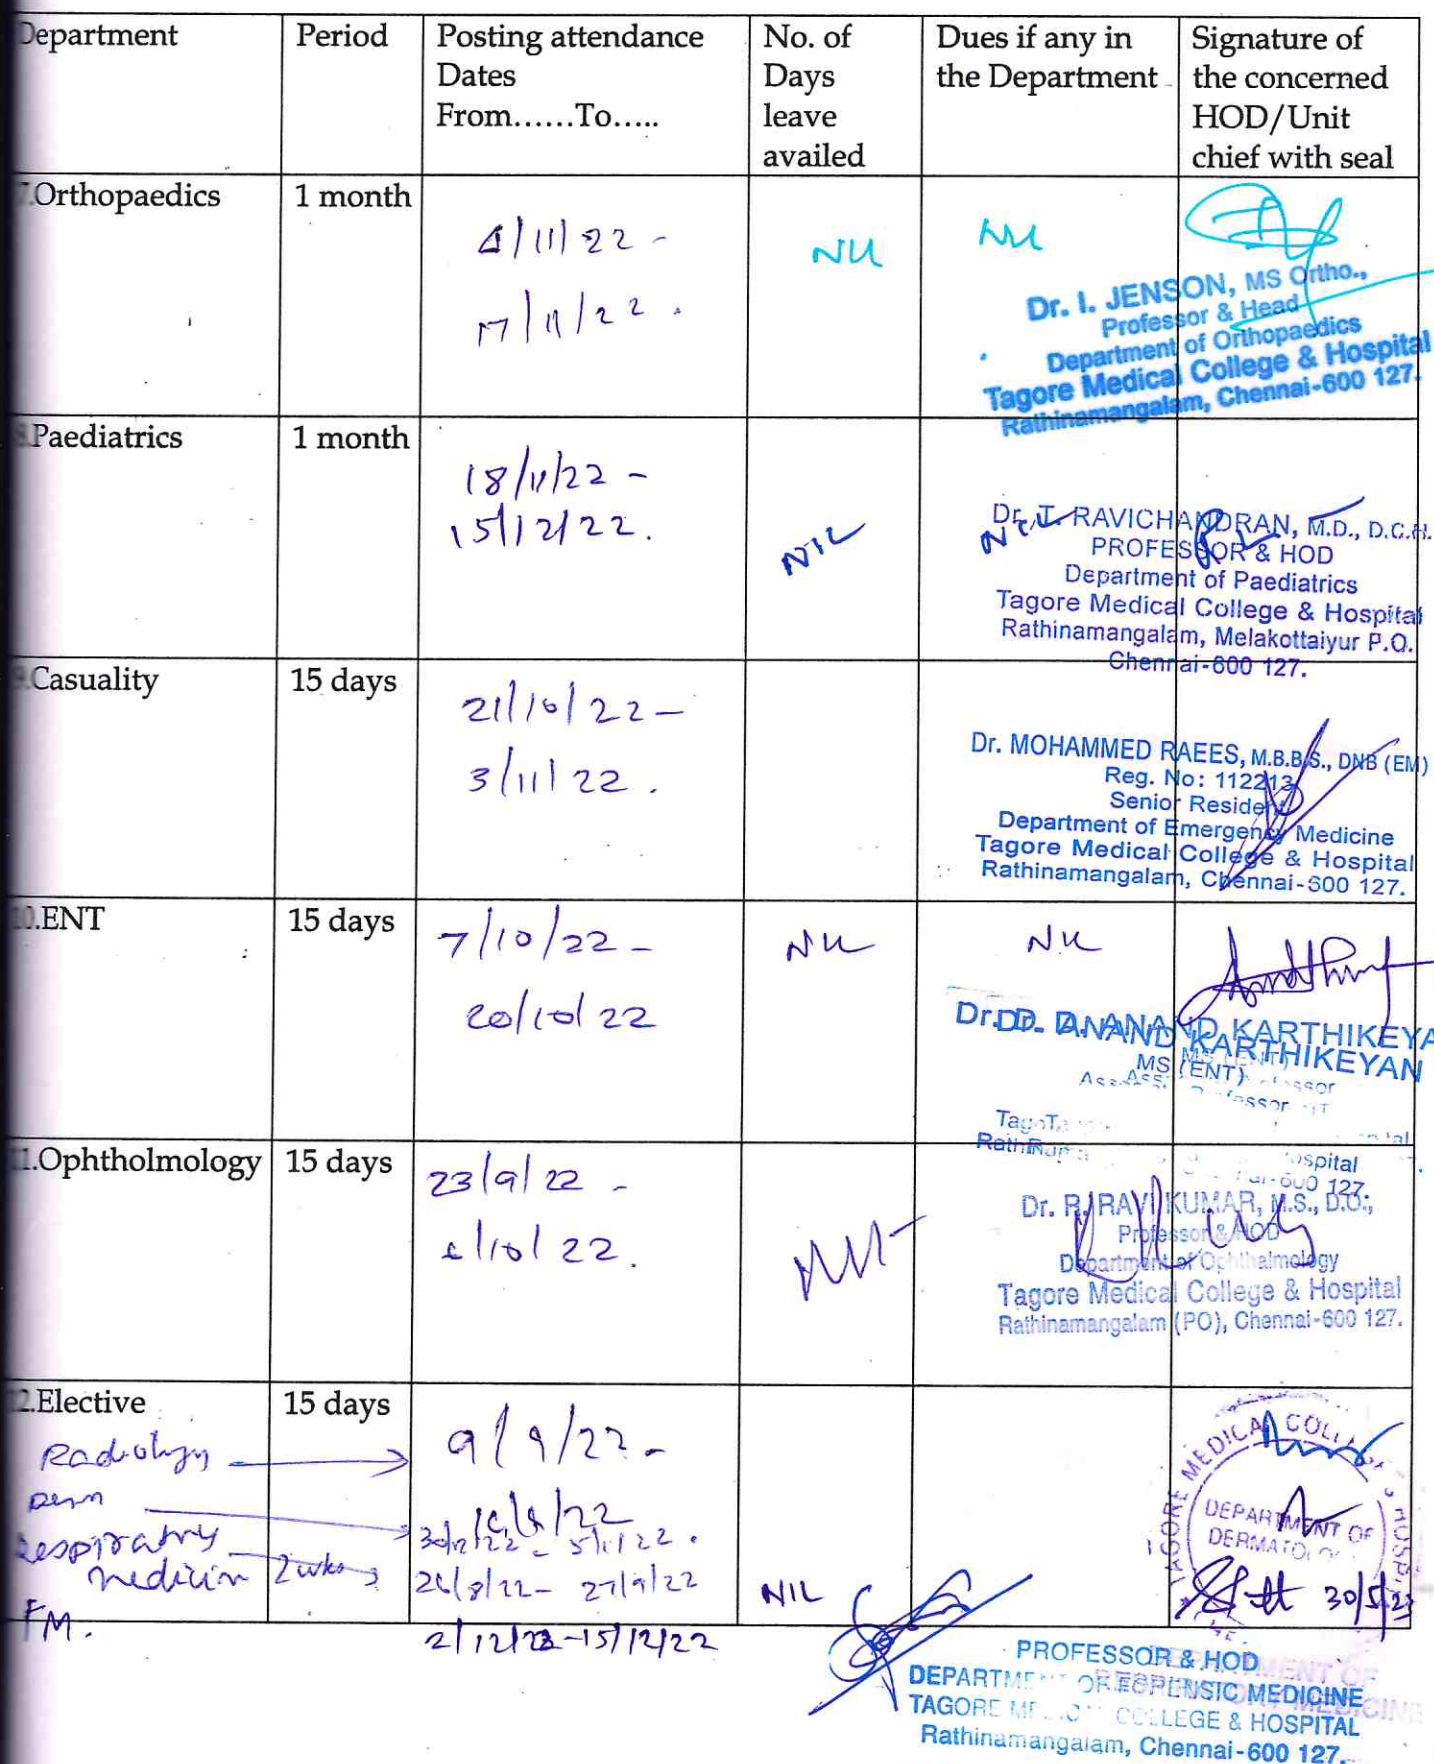 Department Period Posting attendance Dates From......To..... No. of Days leave availed Dues if any in the Department Signature of the concerned HOD/Unit chief with seal
7.Orthopaedics 1 month
4/11/22 -
17/11/22 .
Nil Nil
Dr. I. JENSON, MS Ortho.,
Professor & Head
Department of Orthopaedics
Tagore Medical College & Hospital
Rathinamangalam, Chennai-600 127.
8.Paediatrics 1 month
18/11/22 -
15/12/22.
NIL NIL
Dr. T. RAVICHANDRAN, M.D., D.C.H.
PROFESSOR & HOD
Department of Paediatrics
Tagore Medical College & Hospital
Rathinamangalam, Melakottaiyur P.O.
Chennai-600 127.
9.Casuality 15 days
21/10/22 -
3/11/22 .
Dr. MOHAMMED RAEES, M.B.B.S., DNB (EM)
Reg. No: 112213
Senior Resident
Department of Emergency Medicine
Tagore Medical College & Hospital
Rathinamangalam, Chennai-600 127.
10.ENT 15 days
7/10/22 -
20/10/22
Nil Nil
Dr. D. ANAND KARTHIKEYAN
MS (ENT)
11.Ophtholmology 15 days
23/9/22 -
6/10/22.
Nil
Dr. R. RAVI KUMAR, M.S., D.O.,
Professor & HOD
Department of Ophthalmology
Tagore Medical College & Hospital
Rathinamangalam (PO), Chennai-600 127.
12.Elective 15 days
Radiology 9/9/22 -
Derm
Respiratory
medicin 2 wks
FM. 2/12/22-15/12/22
NIL
TAGORE MEDICAL COLLEGE & HOSPITAL
DEPARTMENT OF
DERMATOLOGY
30/5/23
PROFESSOR & HOD
DEPARTMENT OF FORENSIC MEDICINE
TAGORE MEDICAL COLLEGE & HOSPITAL
Rathinamangalam, Chennai-600 127.